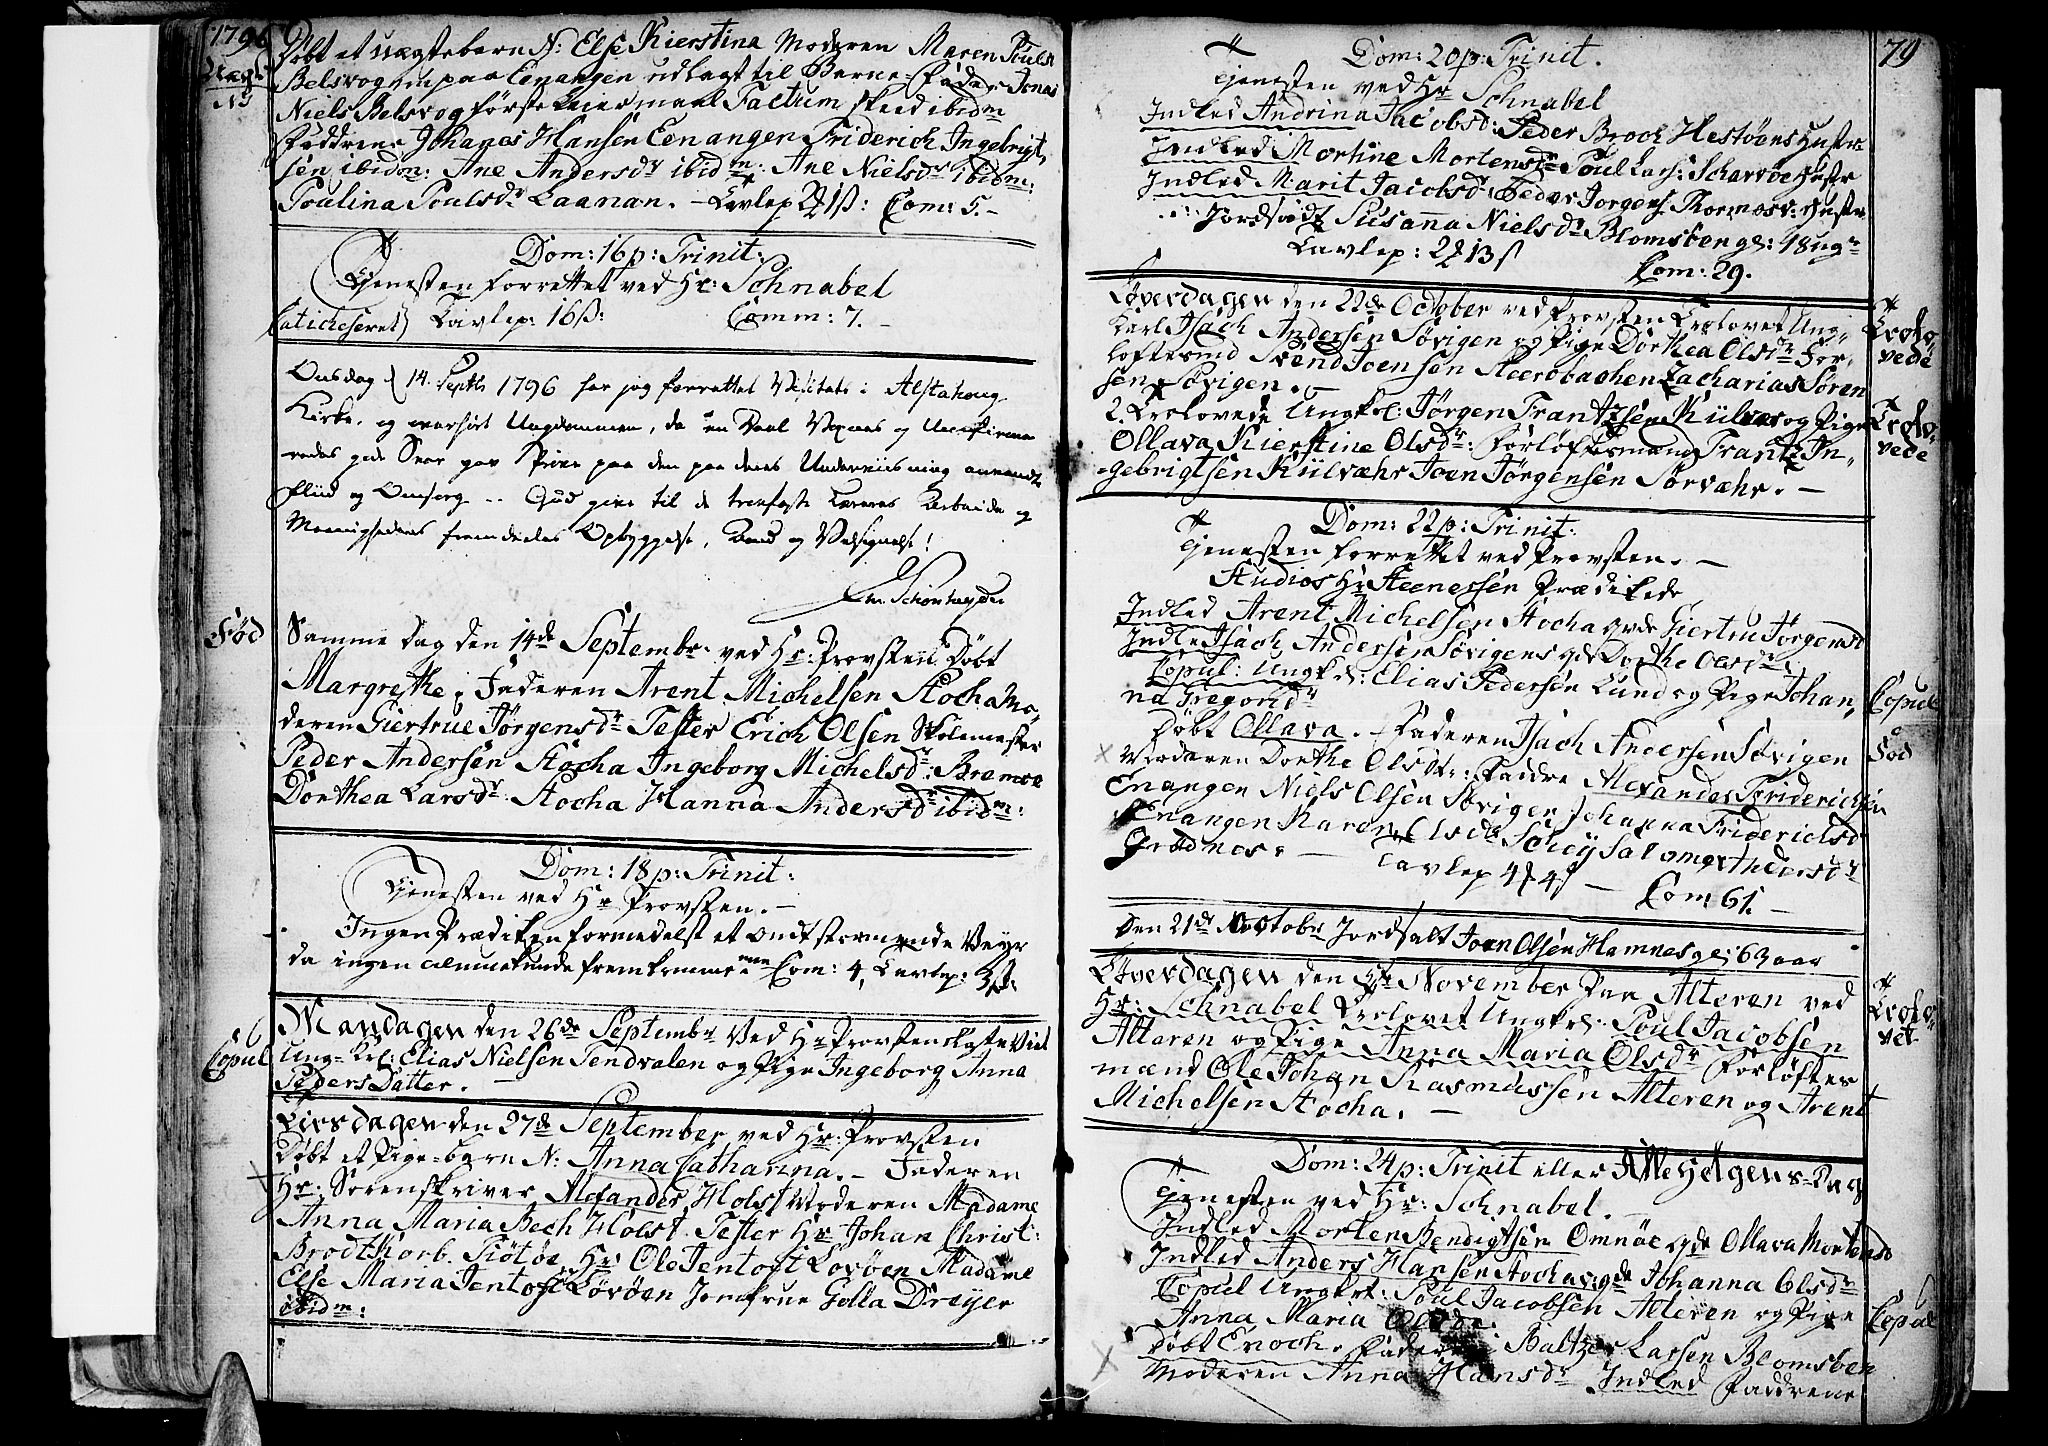 1796
Døbt et uægte barn N: Else Kierstina Moderen Maren Pouls
Belsvog paa Einangen udlagt til Barne-Fader Jonas
Niels Belsvog første Leiermaal Factum skeed ibidm
Faddrene Johanes Hansen Eenangen Friderich Ingebrigt,
sen ibidm: Ane Andersdr ibidm: Ane Nielsdr ibidm:
Poulina Poulsdr Laanan. – Tavlep 1ß: Com: 5. –
Dom: 16 p: Trinit:
Tjenesten forrettet ved Hr: Schnabel
Catichiseret Tavlep: 16ß: Comm: 7. –
Onsdag d 14. Septb 1796 har jeg forrettet Visitats i Alstahoug
Kirke, og overhørt Ungdommen, da en Deel Voxnes og Uconfirme
redes gode Svar gav Prøve paa den paa deres Underviisning anvendte
Fliid og Omsorg .. Gud give til de Læreres Arbeide og
Meenighedens fremdeeles Opbyggelse, Naade og Velsignelse!
Schønheyder
Fød
Samme Dag den 14de Septembr. ved Hr: Provsten Døbt
Margrethe, Faderen Arent Michelsen Stocha Mo,
deren Giertrue Jørgensdr Tester Erich Olsen Skolemester
Peder Andersen Stocha Ingeborg Michelsdr: Bremoe
Dorthea Larsdr Stocha Hanna Andersdr ibidm:
Dom: 18 p: Trinit:
Tjenesten ved Hr Provsten. –
Ingen Prædiken formedelst et ondt stormende Veyr
da ingen almue kunde fremkomme Com: 4, Tavlep: 3ß:
Copul
Mandagen den 26de Septembr Ved Hr Provsten Egte Viet
Ung-Krl: Elias Nielsen Tendvalen og Pige Ingeborg Anna
Peders Datter.
Tirsdagen den 27de September ved Hr: Provsten
Døbt et Pige-barn N: Anna Catharina. – Faderen
Hr: Sorenskriver Alexander Holst Moderen Madame
Anna Maria Bech Holst. Tester Hr Johan Christ:
Brodtkorb. Tiøtøe, Hr Ole Jentoft Lovøen Madame
Else Maria Jentoft Lovøen Jomfrue Golla Dreyer
ibidm:
79
Dom: 20 p: Trinit.
Tjenesten ved Hr Schnabel
Indled Andrina Jacobsd: Peder Broch Hestøens Hustr
Indled Mortine Mortensdr Poul Lars: Scharvøe Hustr
Indled Marit Jacobsdr Peder Jørgens. Hustr
Jordfæst Susanna Nielsdr Blomsøen gl: 18 ugr
Tavlep: 2 13ß Com: 29.
Løverdagen den 22de October ved Provsten Trolovet Ung,
karl Isach Andersen Søvigen og Pige Dorthea Olsdr For,
loftesmd Svend Joensen Zacharias Søren
sen Søvigen. –
Trolo,
vede
2. Trolovede Ungkrl: Jørgen Frantzsen Kiilvær og Pige
Ollava Kierstine Olsdr: Forløftesmænd Frantz In,
gebrigtsen Kiilvæhr Joen Jørgensen Sørvæhr. –
Trolo,
vede
Dom: 22 p: Trinit:
Tjenesten forrettet ved Provsten. –
Studios Hr Steenersen Prædikede
Indled Arent Michelsen Stocha qvde Giertru Jørgensd
Indled Isach Andersen Søvigens qde Dorthe Olsdr
Copul: Ungkrl: Elias Pedersen Lund og Pige Johan,
na Gregorid
Copul
Døbt Ollava. – Faderen Isach Andersen Søvigen
Fød
Moderen Dorthe Olsdr: Faddre Alexander Friderichsen
Enangen Niels Olsen Søvigen Johanna Friderichsd
Enangen Karen Olsdr
Tavlep 4 4ß – Com 61. –
Den 21de Octobr Jordfæst Joen Olsen Hamnes gl: 63 aar
Løverdagen den 5te November Paa Alteren ved
Hr: Schnabel Trolovet Ungkrl: Poul Jacobsen
Alteren og Pige Anna Maria Olsdr Forløftes
mænd Ole Johan Rasmussen Alteren og Arent
Michelsen Stocha. –
Trolo,
vet
Dom: 24 p: Trinit eller Alle Helgens-Dag
Tjenesten ved Hr: Schnabel.
Indled Morten Bendigtsen Omnøe qde Ollava Mortensd
Indled Anders Hansen Stochas qde Johanna Olsdr
Copul Ungkrl: Poul Jacobsen Alteren og Pige
Anna Maria Olsdr
Copul
Døbt Enoch, Fader Baltzer Larsen Blomsøen
Moderen Anna Hansdr Indled Faddrene